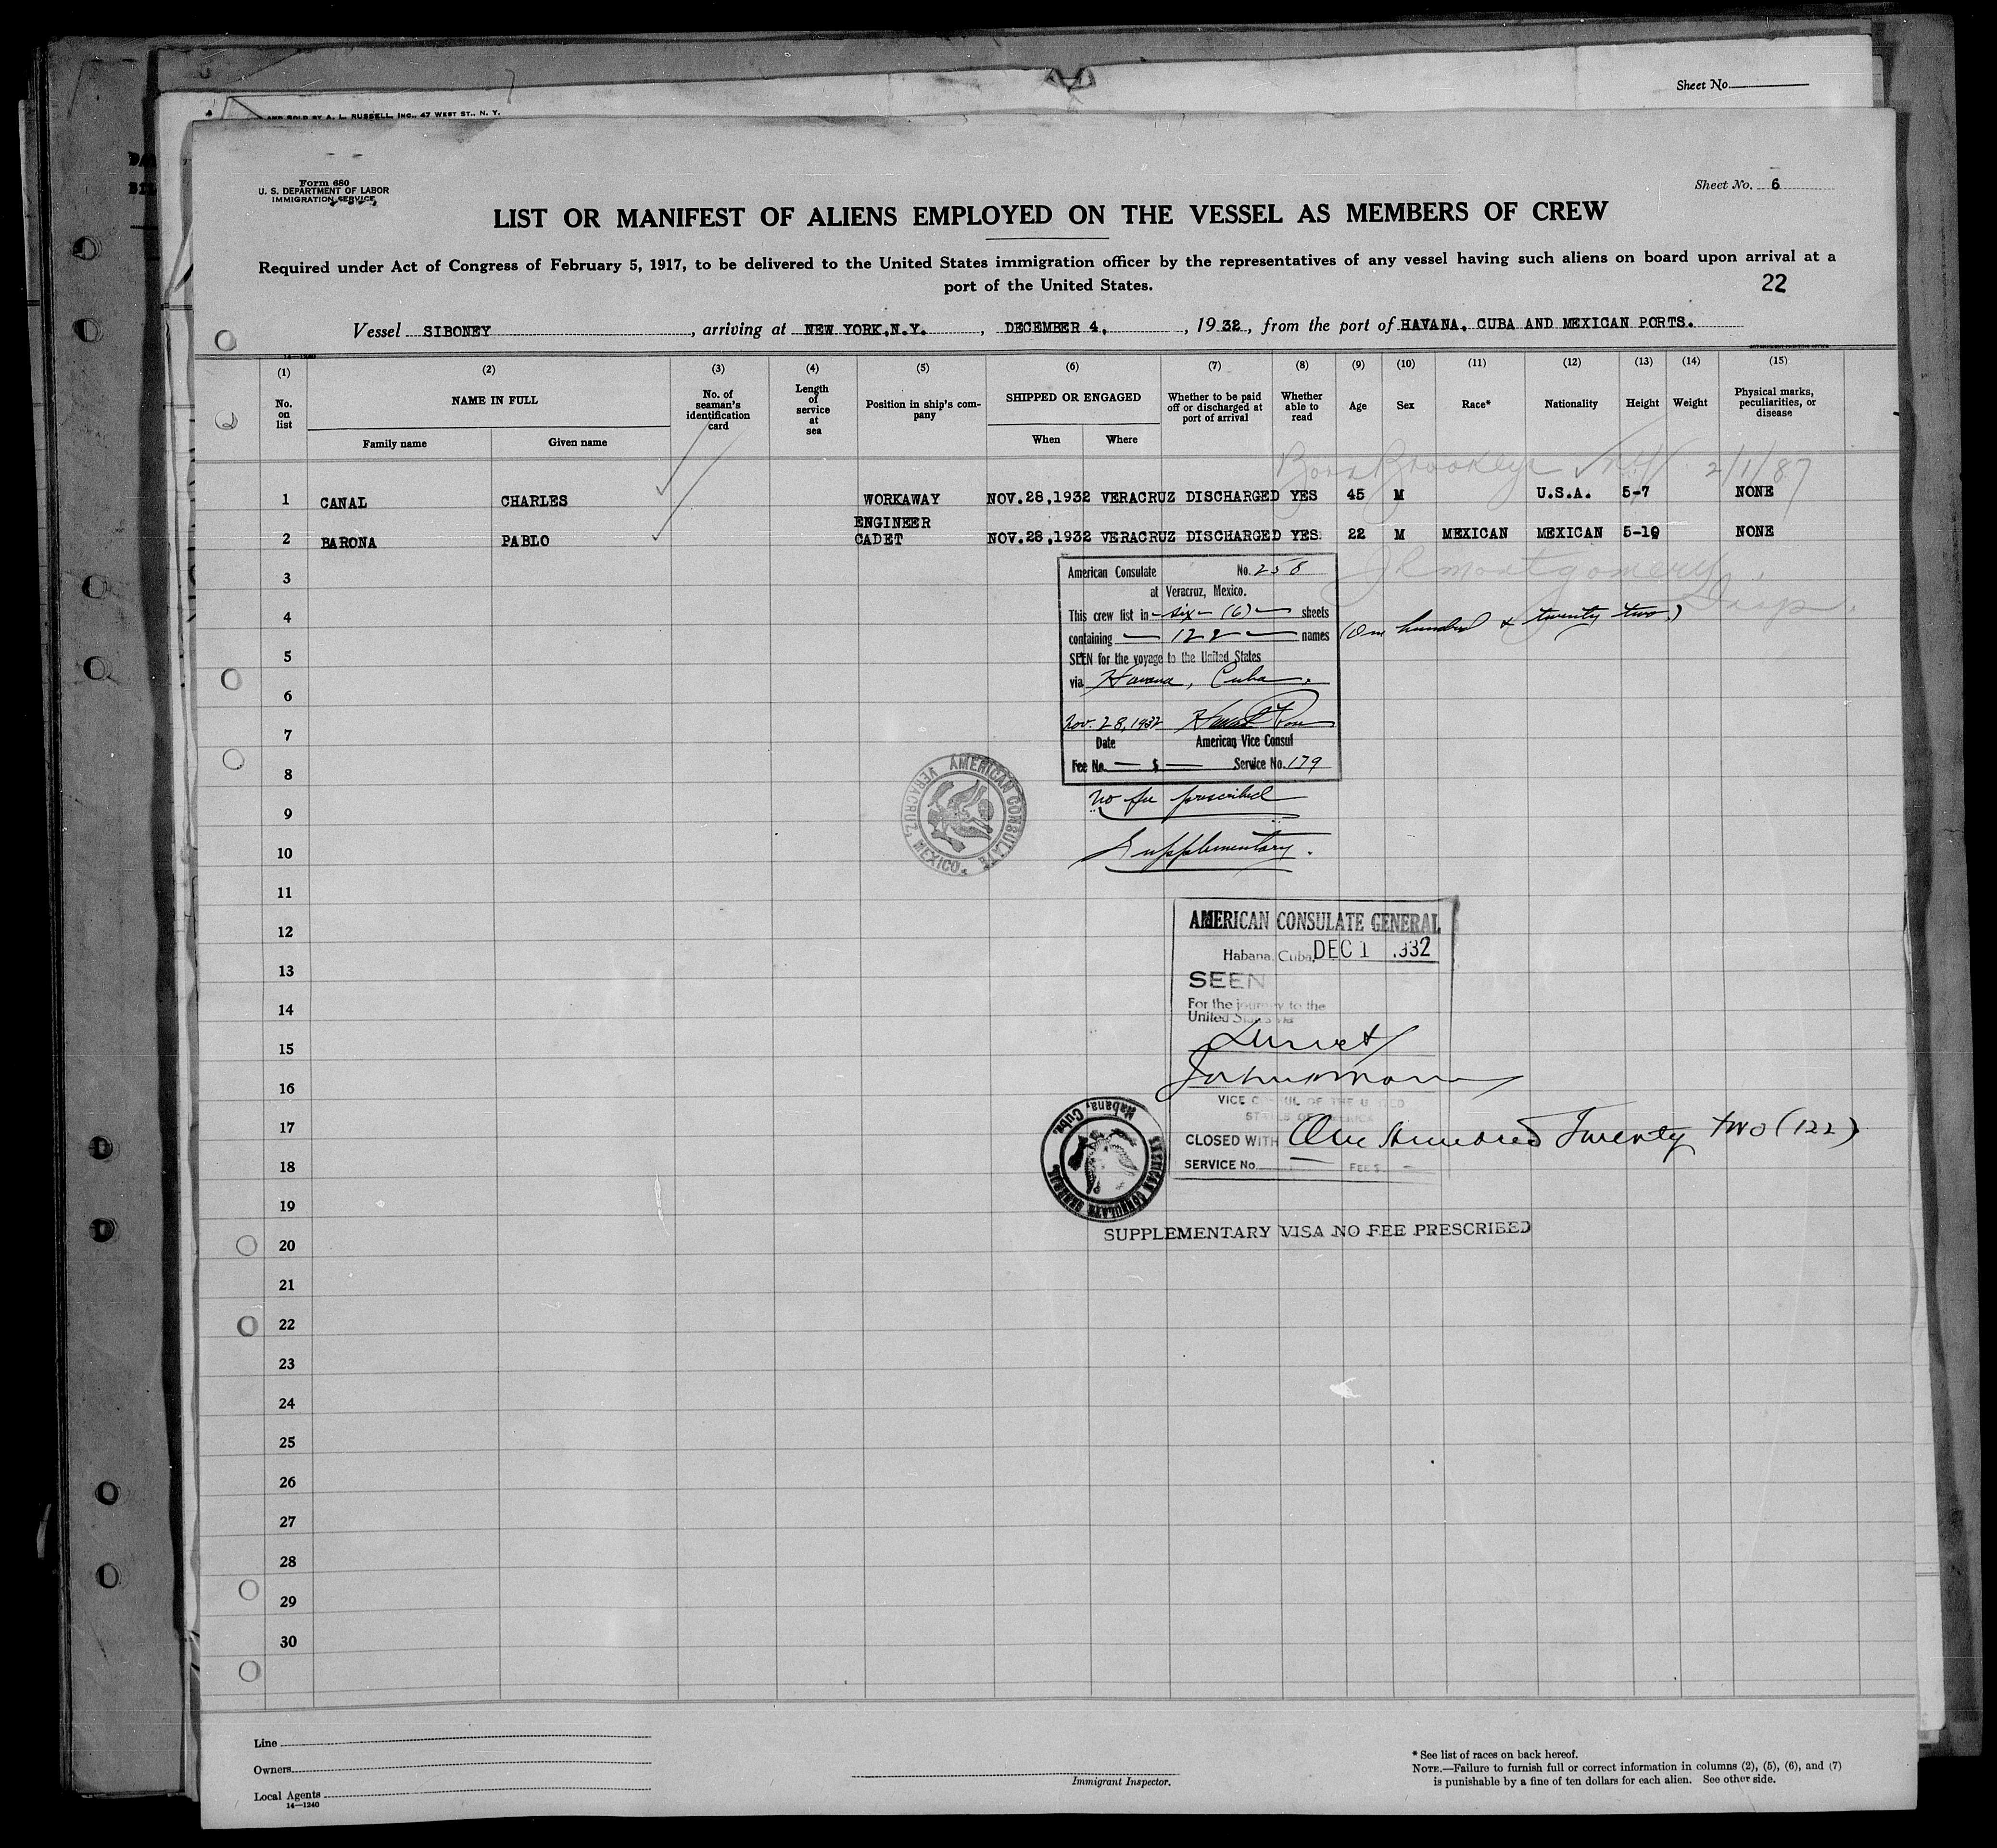 Sheet No.
AND SOLD BY A. L. RUSSELL, INC., 47 WEST ST., N. Y.
Form 680
U. S. DEPARTMENT OF LABOR
IMMIGRATION SERVICE
Sheet No. 6
LIST OR MANIFEST OF ALIENS EMPLOYED ON THE VESSEL AS MEMBERS OF CREW
Required under Act of Congress of February 5, 1917, to be delivered to the United States immigration officer by the representatives of any vessel having such aliens on board upon arrival at a
port of the United States.
22
Vessel SIBONEY, arriving at NEW YORK,N.Y., DECEMBER 4, 1932, from the port of HAVANA, CUBA AND MEXICAN PORTS.
14—1240
(1) (2) (3) (4) (5) (6) (7) (8) (9) (10) (11) (12) (13) (14) (15)
No. on list
NAME IN FULL
Family name Given name
No. of seaman's identification card
Length of service at sea
Position in ship's company
SHIPPED OR ENGAGED
When Where
Whether to be paid off or discharged at port of arrival
Whether able to read
Age
Sex
Race*
Nationality
Height
Weight
Physical marks, peculiarities, or disease
Born Brooklyn NY 2/1/87
1 CANAL CHARLES WORKAWAY NOV.28,1932 VERACRUZ DISCHARGED YES 45 M U.S.A. 5-7 NONE
2 BARONA PABLO ENGINEER CADET NOV.28,1932 VERACRUZ DISCHARGED YES 22 M MEXICAN MEXICAN 5-10 NONE
Montgomery
Insp.
3
4
5
6
7
8
9
10
11
12
13
14
15
16
17
18
19
20
21
22
23
24
25
26
27
28
29
30
American Consulate No. 258
at Veracruz, Mexico.
This crew list in - six - (6) - sheets
containing - 122 - names (One hundred & twenty two)
SEEN for the voyage to the United States
via Havana, Cuba.
Nov. 28, 1932
Date American Vice Consul
Fee No. — $ — Service No. 179
No fee prescribed
Supplementary.
AMERICAN CONSULATE VERACRUZ, MEXICO.
AMERICAN CONSULATE GENERAL
Habana, Cuba, DEC 1 1932
SEEN
For the journey to the
United States via
Direct
VICE CONSUL OF THE UNITED
STATES OF AMERICA
CLOSED WITH One Hundred Twenty two (122)
SERVICE No. FEE $
AMERICAN CONSULATE GENERAL Habana, Cuba.
SUPPLEMENTARY VISA NO FEE PRESCRIBED
Line
Owners
Local Agents
14—1240
Immigrant Inspector.
* See list of races on back hereof.
NOTE.—Failure to furnish full or correct information in columns (2), (5), (6), and (7)
is punishable by a fine of ten dollars for each alien. See other side.